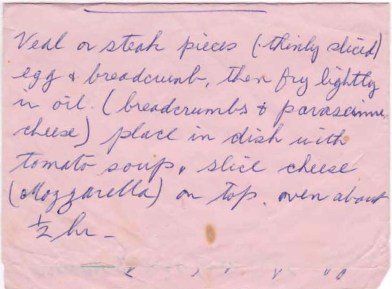 Veal or steak pieces (thinly sliced)
egg & breadcrumb, then fry lightly
in oil. (breadcrumbs & parasamme
cheese) place in dish with
tomato soup, slice cheese
(Mozzarella) on top. oven about
1/2 hr -